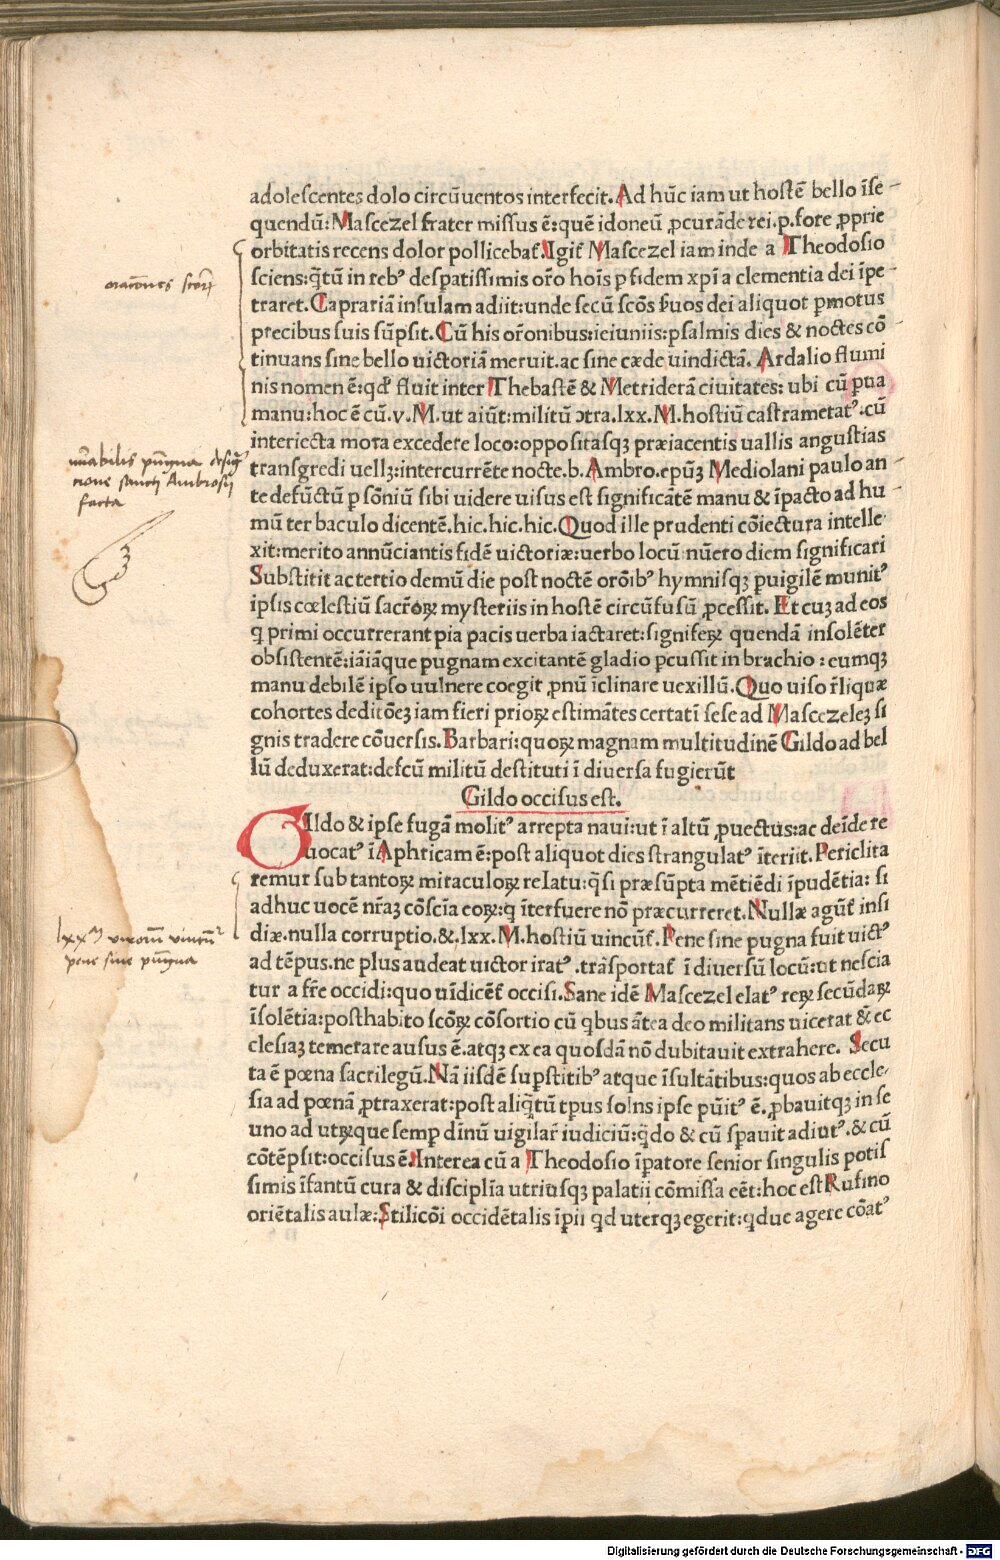 adolescentes dolo circūuentos interfecit. Ad hūc iam ut hostē bello īse
quendū: Mascezel frater missus ē: quē idoneū ꝓcurāde rei.p.fore ꝓprie
orbitatis recens dolor pollicebat̄. Igit̄ Mascezel iam inde a Theodosio
sciens: q̄tū in rebꝰ despatissimis or̄o hoīs p fidem xp̄i a clementia dei īpe
traret. Caprariā insulam adiit: unde secū scōs s̄uos dei aliquot pmotus
precibus suis sūpsit. Cū his or̄onibus: ieiuniis: psalmis dies & noctes cō
tinuans sine bello uictoriā meruit. ac sine cæde uindictā. Ardalio flumi
nis nomen ē: qd̄ fluit inter Thebastē & Metriderā ciuitates: ubi cū pua
manu: hoc ē cū .v. M. ut aiūt: militū ↄtra .lxx. M. hostiū castrametatꝰ: cū
interiecta mora excedere loco: oppositasqꝫ præiacentis uallis angustias
transgredi uellꝫ: intercurrēte nocte .b. Ambro. epūꝫ Mediolani paulo an
te defūctū p sōniū sibi uidere uisus est significātē manu & īpacto ad hu
mū ter baculo dicentē. hic. hic. hic. Quod ille prudenti cōiectura intelle
xit: merito annūciantis fidē uictoriæ: uerbo locū nūero diem significari
Substitit ac tertio demū die post noctē orōibꝰ hymnisqꝫ puigilē munitꝰ
ipsis cœlestiū sacr̄oꝝ mysteriis in hostē circūfusū ꝓcessit. Et cuꝫ ad eos
q primi occurrerant pia pacis uerba iactaret: signifeꝝ quendā insolēter
obsistentē: iāiāque pugnam excitantē gladio pcussit in brachio: eumqꝫ
manu debilē ipso uulnere coegit ꝓnū īclinare uexillū. Quo uiso r̄liquæ
cohortes deditōeꝫ iam fieri prioꝝ estimātes certatī sese ad Mascezeleꝫ si
gnis tradere cōuersis. Barbari: quoꝝ magnam multitudinē Gildo ad bel
lū deduxerat: defcū militū destituti ī diuersa fugierūt
Gildo occisus est.
GIldo & ipse fugā molitꝰ arrepta naui: ut ī altū ꝓuectus: ac deīde re
uocatꝰ ī Aphricam ē: post aliquot dies strangulatꝰ īteriit. Periclita
remur sub tantoꝝ miraculoꝝ relatu: q̄si præsūpta mētiēdi īpudētia: si
adhuc uocē nr̄aꝫ cōscīa eoꝝ: q īterfuere nō præcurreret. Nullæ agūt̄ insi
diæ. nulla corruptio. &. lxx. M. hostiū uincūt̄. Pene sine pugna fuit uictꝰ
ad tēpus. ne plus audeat uictor iratꝰ. trāsportat̄ ī diuersū locū: ut nescia
tur a fr̄e occidi: quo uīdicēt̄ occisi. Sane idē Mascezel elatꝰ reꝝ secūdaꝝ
īsolētia: posthabito scōꝝ cōsortio cū qbus ātea deo militans uicerat & ec
clesiaꝫ temerare ausus ē. atqꝫ ex ea quosdā nō dubitauit extrahere. Secu
ta ē pœna sacrilegū. Nā iisdē supstitibꝰ atque īsultātibus: quos ab eccle
sia ad pœnā ꝓtraxerat: post aliq̄tū tpus solns ipse pūitꝰ ē. ꝓbauitqꝫ in se
uno ad utꝝque semp dīnū uigilar̄ iudiciū: q̄do & cū spauit adiutꝰ. & cū
cōtēpsit: occisus ē. Interea cū a Theodosio īpatore senior singulis potis
simis īfantū cura & disciplīa utriusqꝫ palatii cōmissa eēt: hoc est Rufino
oriētalis aulæ: Stilicōi occidētalis īpii qd uterqꝫ egerit: qdue agere cōatꝰ
orac̄ones scōrꝫ
mirabilis pu͞gna desig
cione sancti Ambrosij
facta
lxx M virorum vincūtʳ
pene sine pu͞gna
Digitalisierung gefördert durch die Deutsche Forschungsgemeinschaft - DFG